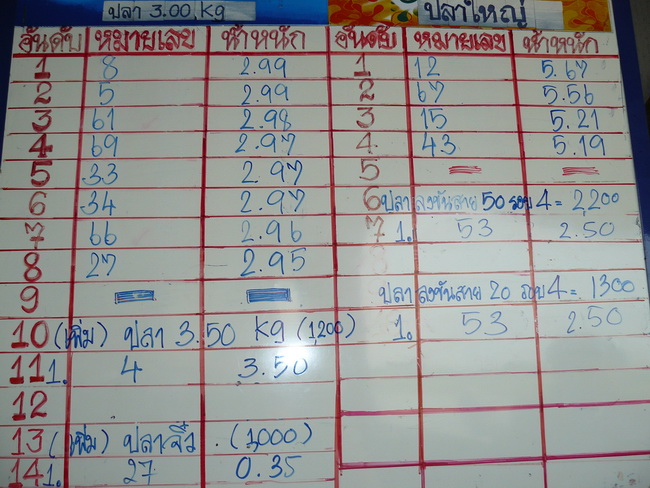 ปลา 3.00 Kg
อันดับ หมายเลข น้ำหนัก
1 8 2.99
2 5 2.99
3 61 2.98
4 69 2.97
5 33 2.97
6 34 2.97
7 66 2.96
8 27 2.95
9
10 (เพิ่ม) ปลา 3.50 Kg (1200)
11 1. 4 3.50
12
13 (เพิ่ม) ปลาจิ๋ว . (1,000)
14 1. 27 0.35
ปลาใหญ่
อันดับ หมายเลข น้ำหนัก
1 12 5.67
2 67 5.56
3 15 5.21
4 43 5.19
5
6 ปลา ลงขันสาย 50 รอบ 4 = 2200
7 1. 53 2.50
ปลา ลงขันสาย 20 รอบ 4 = 1300
1. 53 2.50